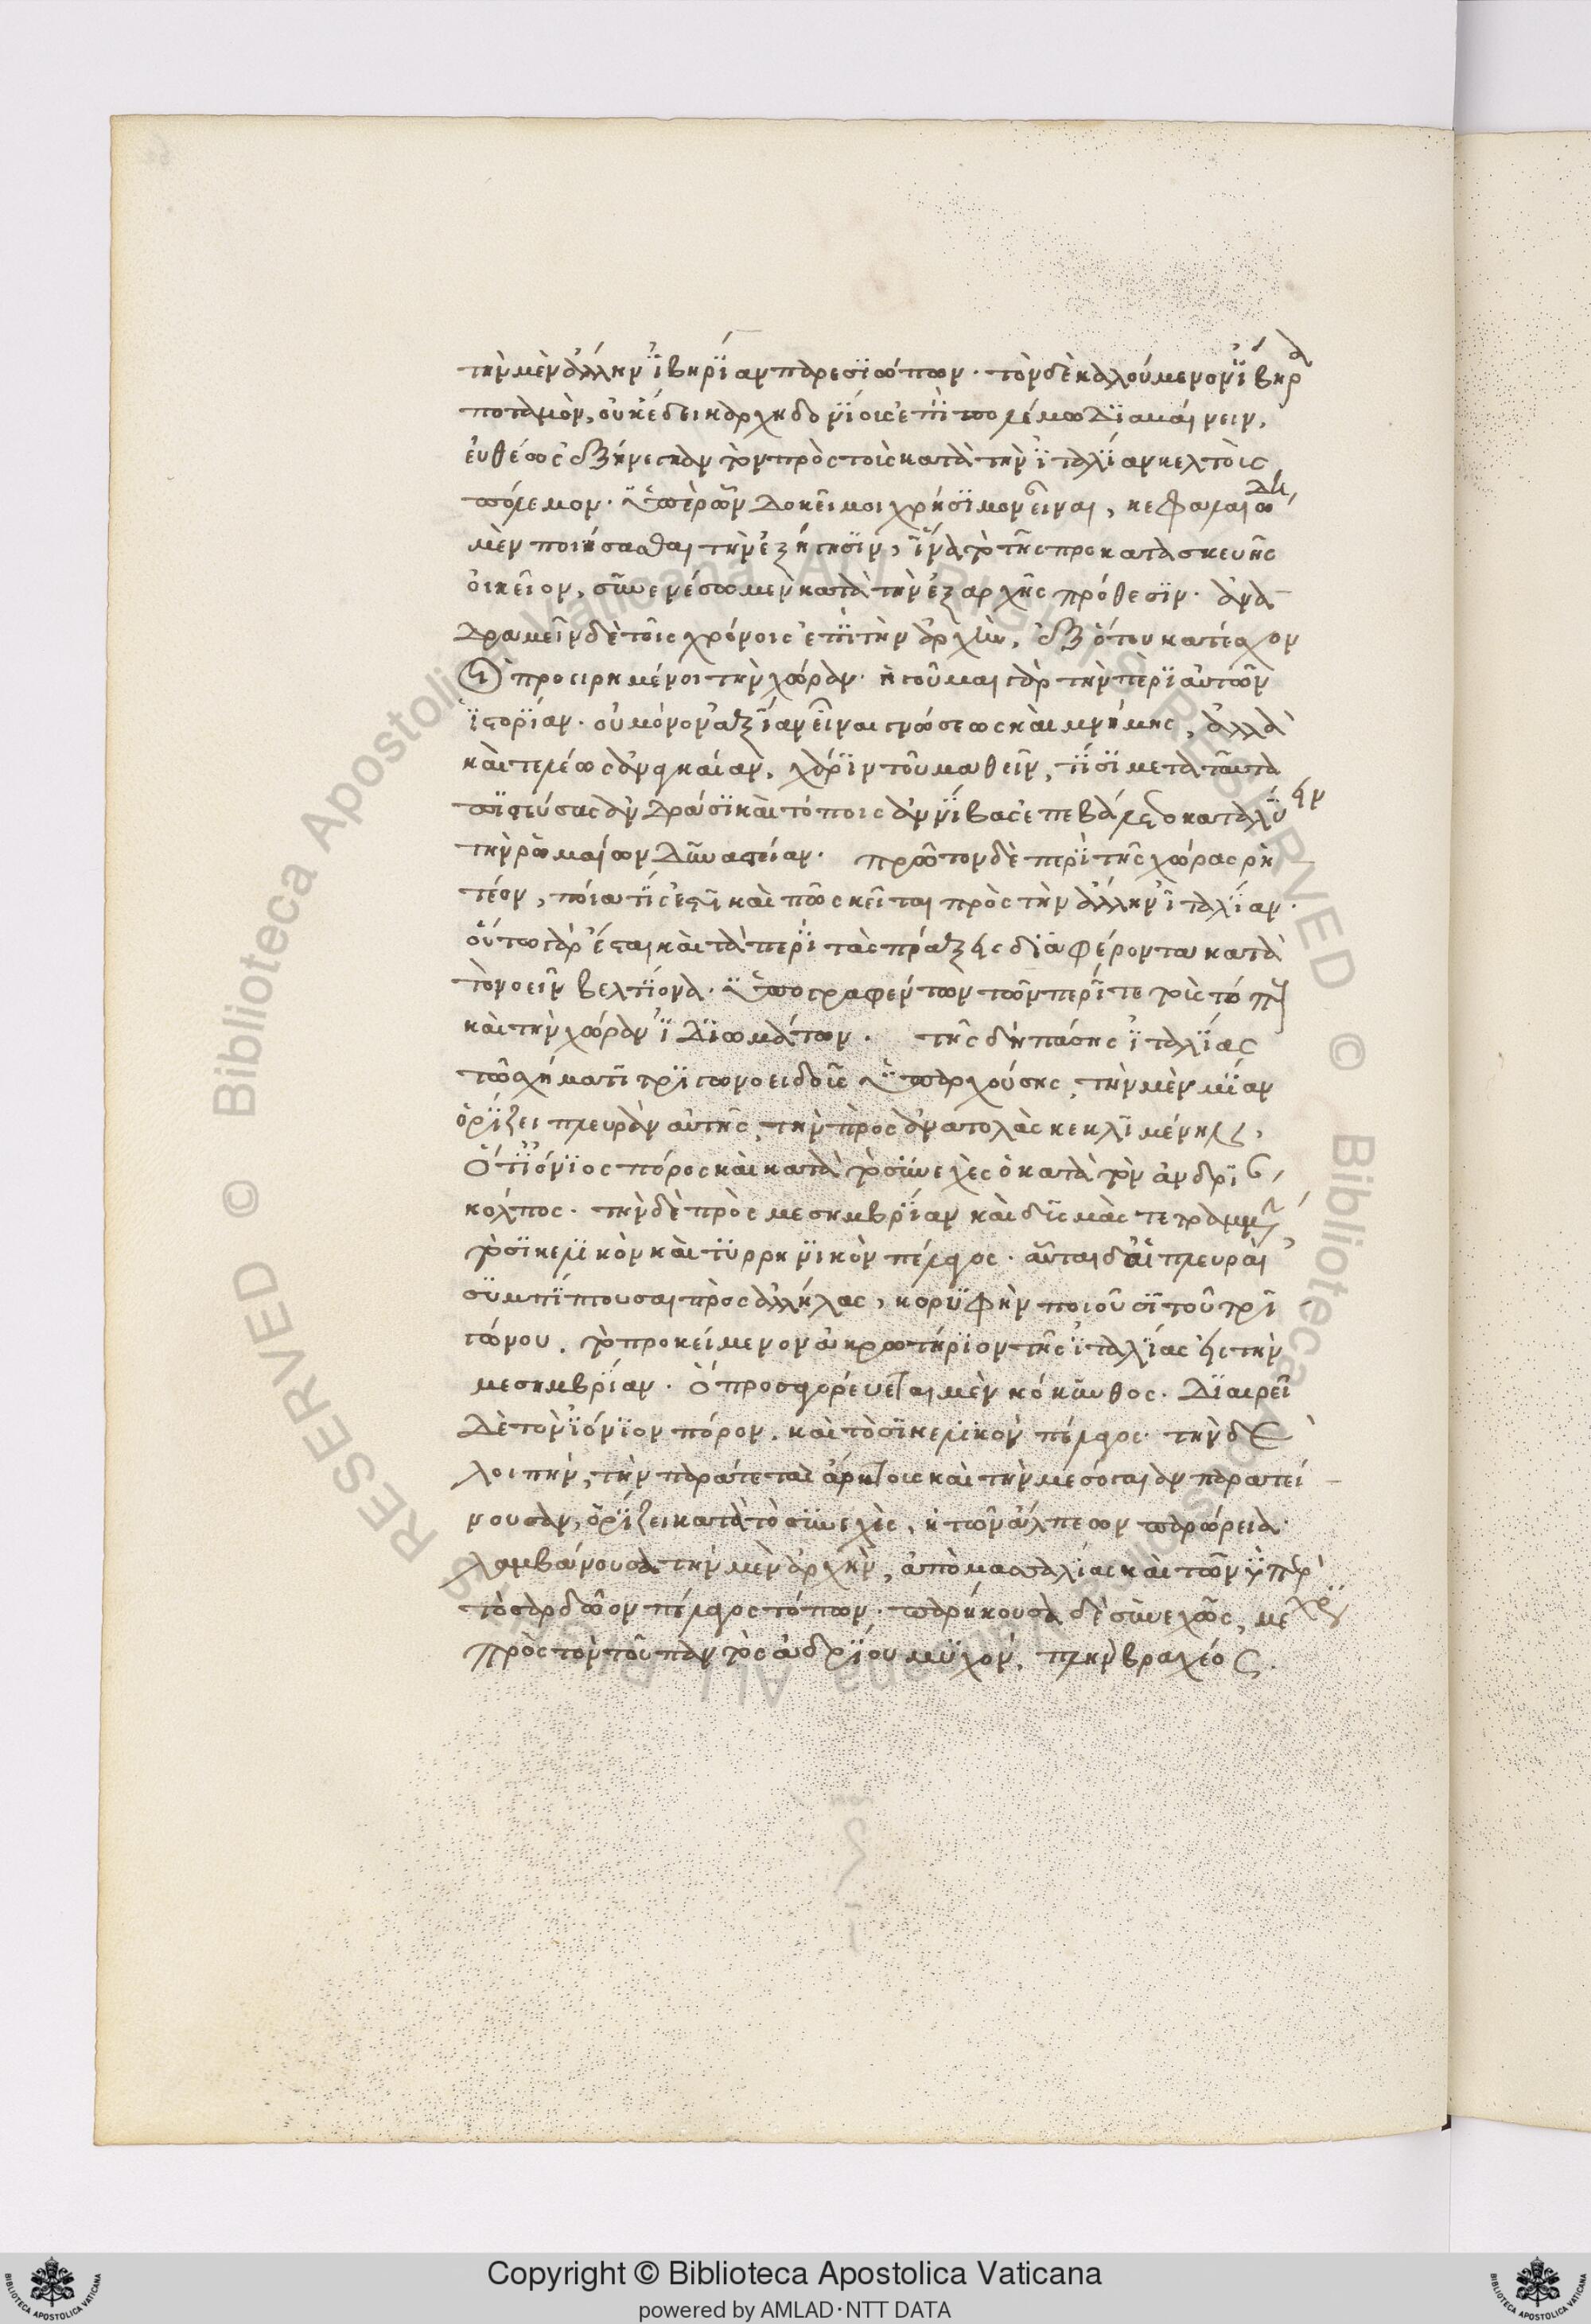 τὴν μὲν ἄλλην ἰβηρίαν παρεσιώπων· τὸν δὲ καλούμενον ἴβηρα
ποταμὸν, οὐκ ἔδει καρχηδονίοις ἐπὶ πολέμω διαβαίνειν,
εὐθέως ἐξήνεγκαν τὸν πρὸς τοὺς κατὰ τὴν ἰταλίαν κελτοὺς
πόλεμον· ὑπὲρ ὧν δοκεῖ μοι χρήσιμον εἶναι, κεφαλαιώδη
μὲν ποιήσασθαι τὴν ἐξήγησιν, ἵνα τὸ τῆς προκατασκευῆς
οἰκεῖον, συνενέσωμεν κατὰ τὴν ἐξαρχῆς πρόθεσιν· ἀνα
δραμεῖν δὲ τοῖς χρόνοις ἐπὶ τὴν ἀρχὴν, ἐξ ὅτου κατέσχον
οἱ προειρημένοι τὴν χώραν· ἡγοῦμαι γὰρ τὴν περὶ αὐτῶν
ἱστορίαν· οὐ μόνον ἀξίαν εἶναι γνώσεως καὶ μνήμης, ἀλλὰ
καὶ τελέως ἀναγκαίαν, χάριν τοῦ μαθεῖν, τίσι μετὰ ταῦτα
πιστεύσας ἀνδράσι καὶ τόποις ἀννίβας ἐπεβάλετο καταλύειν
τὴν ῥωμαίων δυναστείαν· πρῶτον δὲ περὶ τῆς χώρας ῥη
τέον, ποία τίς ἐστι καὶ πῶς κεῖται πρὸς τὴν ἄλλην ἰταλίαν·
οὕτω γὰρ ἔσται καὶ τὰ περὶ τὰς πράξεις διαφέροντα κατα
τονοεῖν βελτίονα· ὑπογραφέντων τῶν περί τε τοὺς τόπους
καὶ τὴν χώραν ἰδιωμάτων· τῆς δὴ πάσης ἰταλίας
τῶ σχήματι τριγωνοειδοῦς ὑπαρχούσης, τὴν μὲν μίαν
ὁρίζει πλευρὰν αὐτῆς, τὴν πρὸς ἀνατολὰς κεκλιμένην,
ὅ τ' ἰόνιος πόρος καὶ κατὰ τὸ συνεχὲς ὁ κατὰ τὸν ἀνδρί
κόλπος· τὴν δὲ πρὸς μεσημβρίαν καὶ δυσμὰς τετραμμένην
τὸ σικελικὸν καὶ τυρρηνικὸν πέλαγος· αὗται δ' αἱ πλευραὶ
συμπίπτουσαι πρὸς ἀλλήλας, κορυφὴν ποιοῦσι τοῦ τρι
γώνου. τὸ προκείμενον ἀκρωτήριον τῆς ἰταλίας εἰς τὴν
μεσημβρίαν· ὃ προσαγορεύεται μὲν κόκυνθος· διαιρεῖ
δὲ τὸν ἰόνιον πόρον. καὶ τὸ σικελικὸν πέλαγος· τὴν δὲ
λοιπὴν, τὴν παρά τε τὰς ἄρκτους καὶ τὴν μεσόγαιαν παρατεί
νουσαν, ὁρίζει κατὰ τὸ συνεχὲς, ἡ τῶν ἄλπεων παρώρεια·
λαμβάνουσα τὴν μὲν ἀρχὴν, ἀπὸ μασσαλίας καὶ τῶν ὑπὲρ
τὸ σαρδῶον πέλαγος τόπων· παρήκουσα δὲ συνεχῶς, μέχρι
πρὸς τὸν τοῦ παντὸς ἀδρίου μυχόν, πλὴν βραχέος.